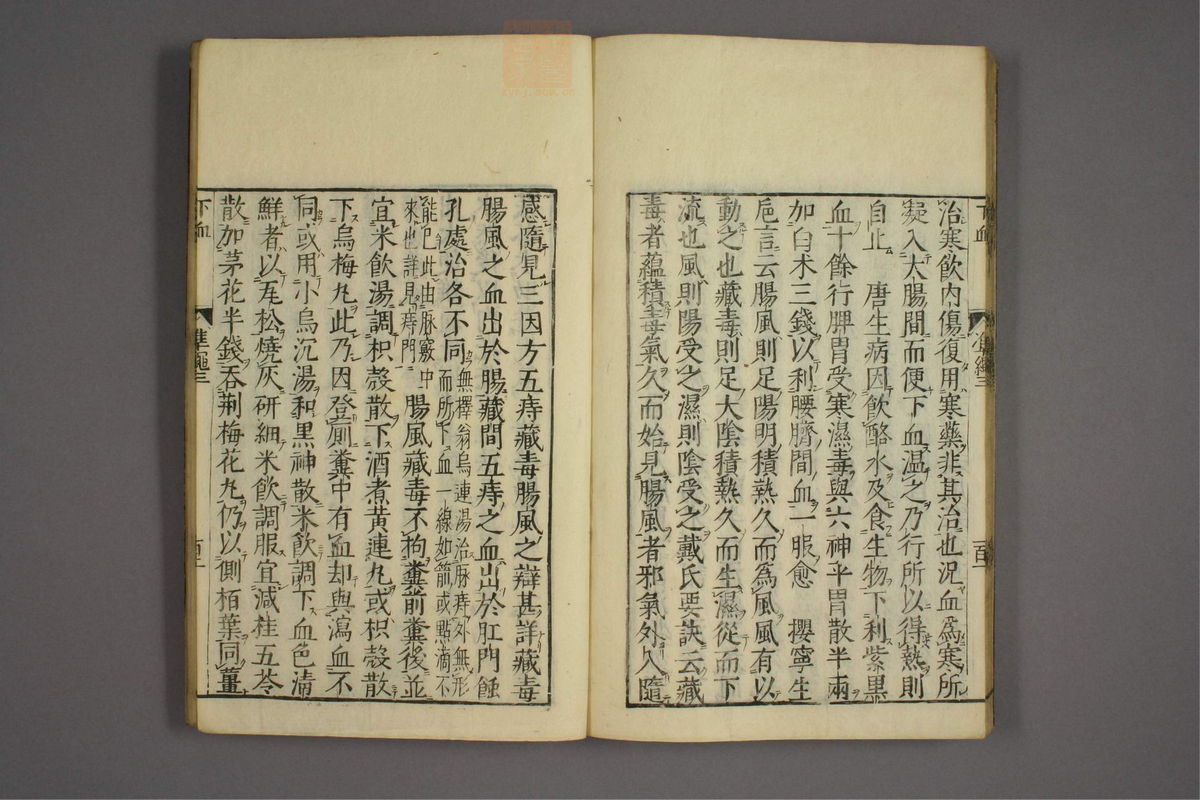 治寒飲內傷復用寒藥非其治也況血爲寒所
凝入大腸間而便下血温之乃行所以得熱則
自止　唐生病因飲酪水及食生物下利紫黒
血十餘行脾胃受寒濕毒與六神平胃散半兩
加白朮三錢以利腰臍間血一服愈　攖寧生
巵言云腸風則足陽明積熱久而爲風風有以
動之也藏毒則足大陰積熱久而生濕從而下
流也風則陽受之濕則陰受之戴氏要訣云藏
毒者蘊積毒氣久而始見腸風者邪氣外入隨
感隨見三因方五痔藏毒腸風之辯甚詳藏毒
腸風之血出於腸藏間五痔之血出於肛門蝕
孔處治各不同無擇翁烏連湯治脉痔外無形
而所下血一線如箭或點滴不
能已此由脉竅中
來也詳見痔門　腸風藏毒不拘糞前糞後並
宜米飲湯調枳殼散下酒煮黄連丸或枳殼散
下烏梅丸此乃因登厠糞中有血却與瀉血不
同或用小烏沉湯和黒神散米飲調下血色清
鮮者以瓦松燒灰研細米飲調服宜減桂五苓
散加茅花半錢吞荆梅花丸仍以側栢葉同薑
下血
準繩三